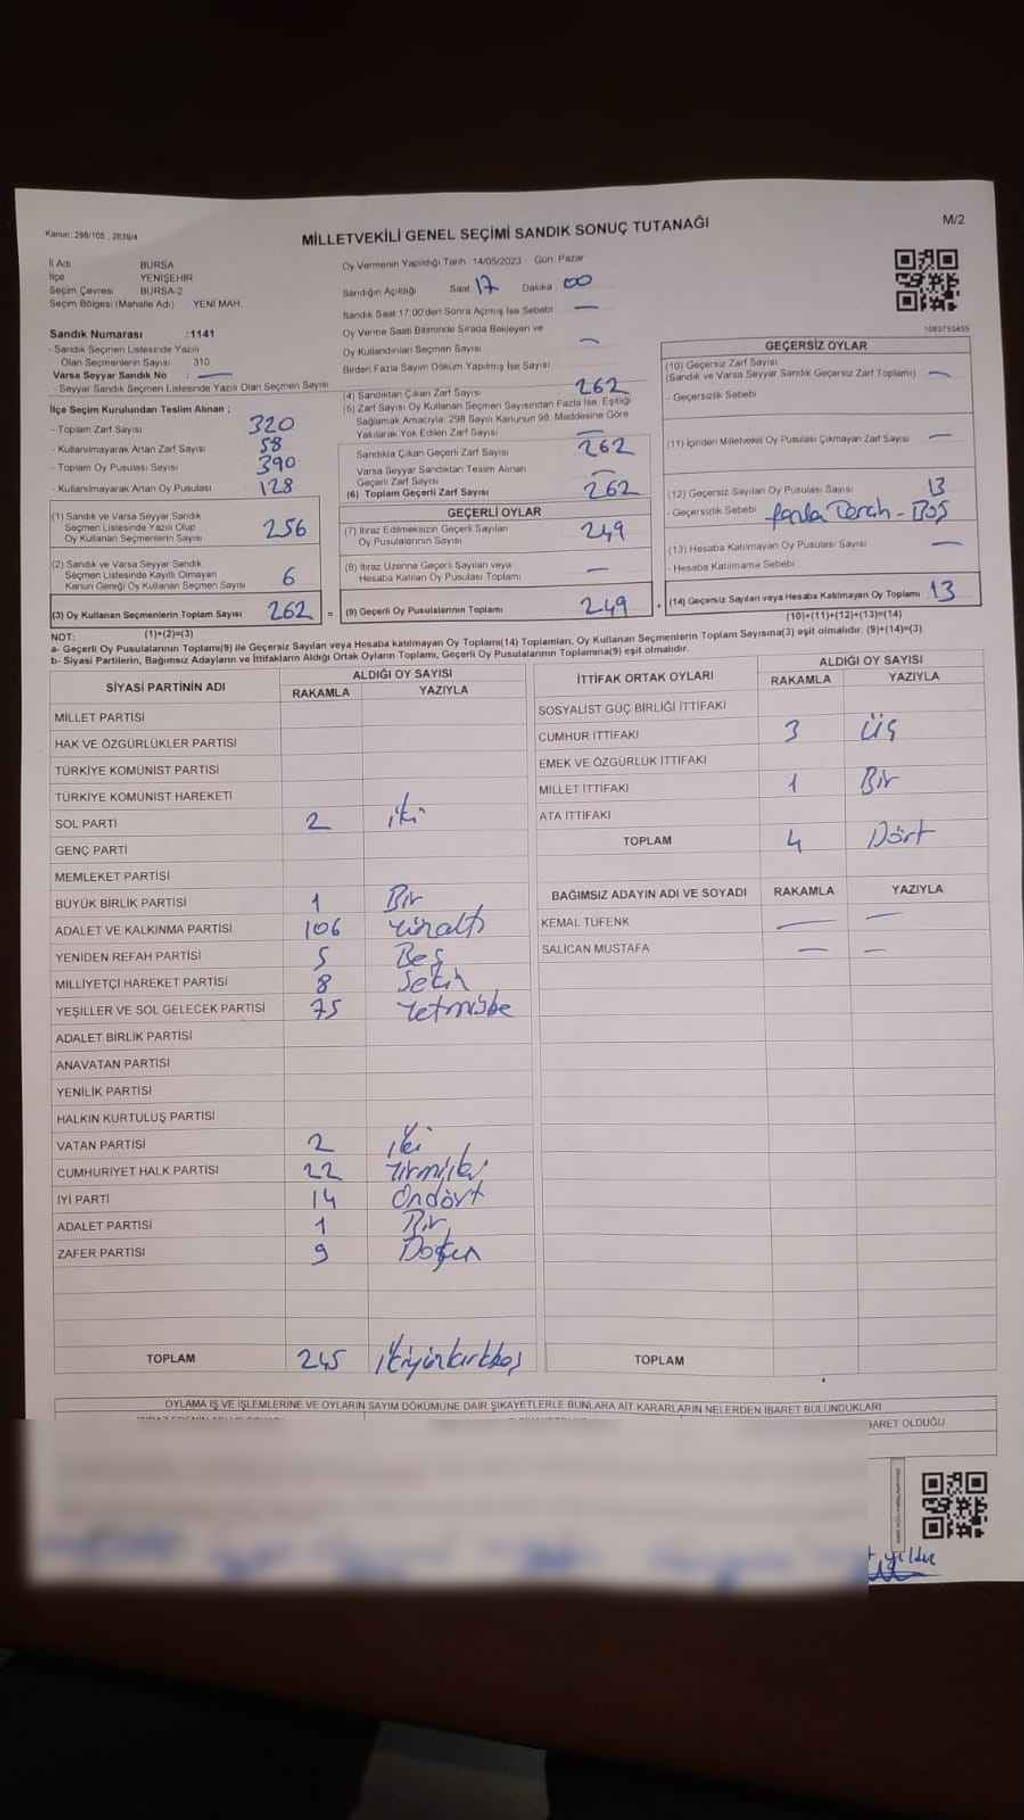 Kanun: 298/105, 2839/4
MİLLETVEKİLİ GENEL SEÇİMİ SANDIK SONUÇ TUTANAĞI
M/2
İl Adı BURSA
İlçe YENİŞEHİR
Seçim Çevresi BURSA-2
Seçim Bölgesi (Mahalle Adı) YENİ MAH.
Sandık Numarası :1141
- Sandık Seçmen Listesinde Yazılı
Olan Seçmenlerin Sayısı 310
Varsa Seyyar Sandık No : —
- Seyyar Sandık Seçmen Listesinde Yazılı Olan Seçmen Sayısı
İlçe Seçim Kurulundan Teslim Alınan ;
- Toplam Zarf Sayısı 320
- Kullanılmayarak Artan Zarf Sayısı 58
- Toplam Oy Pusulası Sayısı 390
- Kullanılmayarak Artan Oy Pusulası 128
(1) Sandık ve Varsa Seyyar Sandık
Seçmen Listesinde Yazılı Olup
Oy Kullanan Seçmenlerin Sayısı 256
(2) Sandık ve Varsa Seyyar Sandık
Seçmen Listesinde Kayıtlı Olmayan
Kanun Gereği Oy Kullanan Seçmen Sayısı 6
(3) Oy Kullanan Seçmenlerin Toplam Sayısı 262 =
(1)+(2)=(3)
Oy Vermenin Yapıldığı Tarih : 14/05/2023 - Gün: Pazar
Sandığın Açıldığı Saat: 17 Dakika: 00
Sandık Saat 17:00'den Sonra Açılmış İse Sebebi —
Oy Verme Saati Bitiminde Sırada Bekleyen ve
Oy Kullandırılan Seçmen Sayısı —
Birden Fazla Sayım Döküm Yapılmış İse Sayısı
(4) Sandıktan Çıkan Zarf Sayısı 262
(5) Zarf Sayısı Oy Kullanan Seçmen Sayısından Fazla İse, Eşitliği
Sağlamak Amacıyla; 298 Sayılı Kanunun 98. Maddesine Göre
Yakılarak Yok Edilen Zarf Sayısı —
Sandıkta Çıkan Geçerli Zarf Sayısı 262
Varsa Seyyar Sandıktan Teslim Alınan
Geçerli Zarf Sayısı —
(6) Toplam Geçerli Zarf Sayısı 262
GEÇERLİ OYLAR
(7) İtiraz Edilmeksizin Geçerli Sayılan
Oy Pusulalarının Sayısı 249
(8) İtiraz Üzerine Geçerli Sayılan veya
Hesaba Katılan Oy Pusulası Toplamı —
(9) Geçerli Oy Pusulalarının Toplamı 249 +
1083755455
GEÇERSİZ OYLAR
(10) Geçersiz Zarf Sayısı
(Sandık ve Varsa Seyyar Sandık Geçersiz Zarf Toplamı) —
- Geçersizlik Sebebi
(11) İçinden Milletvekili Oy Pusulası Çıkmayan Zarf Sayısı —
(12) Geçersiz Sayılan Oy Pusulası Sayısı 13
- Geçersizlik Sebebi - Boş
(13) Hesaba Katılmayan Oy Pusulası Sayısı —
- Hesaba Katılmama Sebebi
(14) Geçersiz Sayılan veya Hesaba Katılmayan Oy Toplamı 13
(10)+(11)+(12)+(13)=(14)
NOT:
a- Geçerli Oy Pusulalarının Toplamı(9) ile Geçersiz Sayılan veya Hesaba katılmayan Oy Toplamı(14) Toplamları, Oy Kullanan Seçmenlerin Toplam Sayısına(3) eşit olmalıdır. (9)+(14)=(3)
b- Siyasi Partilerin, Bağımsız Adayların ve İttifakların Aldığı Ortak Oyların Toplamı, Geçerli Oy Pusulalarının Toplamına(9) eşit olmalıdır.
SİYASİ PARTİNİN ADI ALDIĞI OY SAYISI
RAKAMLA YAZIYLA
MİLLET PARTİSİ
HAK VE ÖZGÜRLÜKLER PARTİSİ
TÜRKİYE KOMÜNİST PARTİSİ
TÜRKİYE KOMÜNİST HAREKETİ
SOL PARTİ 2 iki
GENÇ PARTİ
MEMLEKET PARTİSİ
BÜYÜK BİRLİK PARTİSİ 1 Bir
ADALET VE KALKINMA PARTİSİ 106 Yüzaltı
YENİDEN REFAH PARTİSİ 5 Beş
MİLLİYETÇİ HAREKET PARTİSİ 8 Sekiz
YEŞİLLER VE SOL GELECEK PARTİSİ 75 Yetmişbe
ADALET BİRLİK PARTİSİ
ANAVATAN PARTİSİ
YENİLİK PARTİSİ
HALKIN KURTULUŞ PARTİSİ
VATAN PARTİSİ 2 iki
CUMHURİYET HALK PARTİSİ 22 Yirmiiki
İYİ PARTİ 14 Ondört
ADALET PARTİSİ 1 Bir
ZAFER PARTİSİ 9 Dokuz
TOPLAM 245 ikiyüzkırkbeş
İTTİFAK ORTAK OYLARI ALDIĞI OY SAYISI
RAKAMLA YAZIYLA
SOSYALİST GÜÇ BİRLİĞİ İTTİFAKI
CUMHUR İTTİFAKI 3 Üç
EMEK VE ÖZGÜRLÜK İTTİFAKI
MİLLET İTTİFAKI 1 Bir
ATA İTTİFAKI
TOPLAM 4 Dört
BAĞIMSIZ ADAYIN ADI VE SOYADI RAKAMLA YAZIYLA
KEMAL TÜFENK — —
SALİCAN MUSTAFA — —
TOPLAM
OYLAMA İŞ VE İŞLEMLERİNE VE OYLARIN SAYIM DÖKÜMÜNE DAİR ŞİKAYETLERLE BUNLARA AİT KARARLARIN NELERDEN İBARET BULUNDUKLARI
BARET OLDUĞU